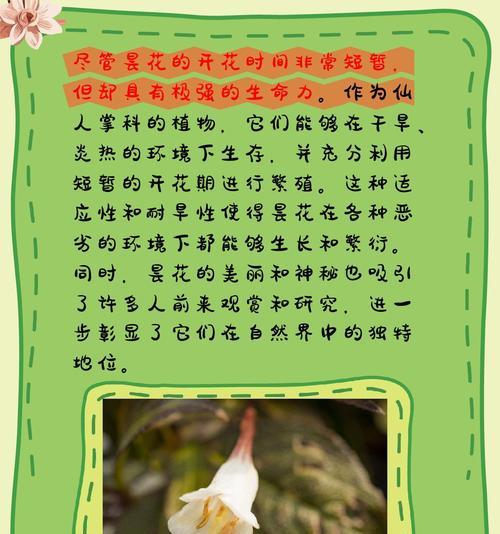 尽管昙花的开花时间非常短暂，
但却具有极强的生命力。作为仙
人掌科的植物，它们能够在干旱、
炎热的环境下生存，并充分利用
短暂的开花期进行繁殖。这种适
应性和耐旱性使得昙花在各种恶
劣的环境下都能够生长和繁衍。
同时，昙花的美丽和神秘也吸引
了许多人前来观赏和研究，进一
步彰显了它们在自然界中的独特
地位。